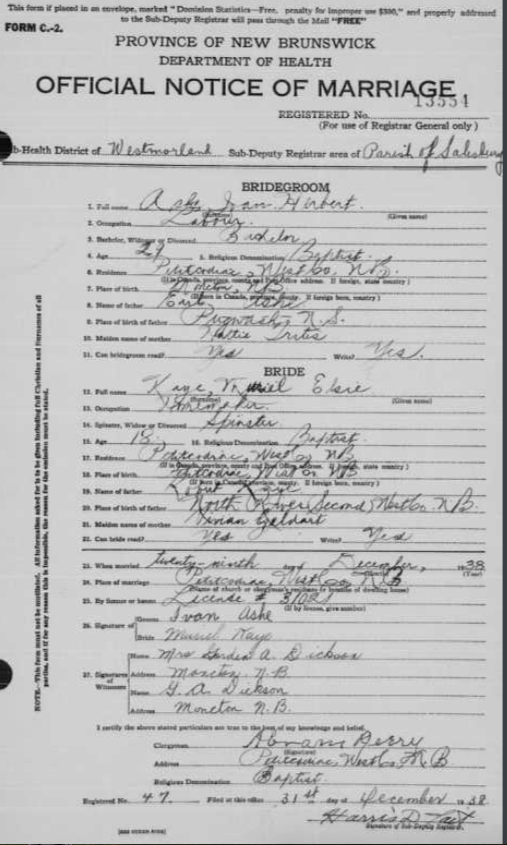 This form if placed in an envelope, marked "Dominion Statistics—Free, penalty for improper use $300," and properly addressed
to the Sub-Deputy Registrar will pass through the Mail "FREE"
FORM C.-2.
PROVINCE OF NEW BRUNSWICK
DEPARTMENT OF HEALTH
OFFICIAL NOTICE OF MARRIAGE
13554
REGISTERED No.
(For use of Registrar General only)
b-Health District of Westmorland Sub-Deputy Registrar area of Parish of Salisbury
BRIDEGROOM
1. Full name Ashe Ivan Herbert
(Surname) (Given name)
2. Occupation Labourer
3. Bachelor, Widower or Divorced Bachelor
4. Age 29 5. Religious Denomination Baptist
6. Residence Petitcodiac, West Co. N.B.
(If in Canada, province, county and Post Office address. If foreign, state country)
7. Place of birth Moncton, N.B.
(If born in Canada, province, county. If foreign born, country)
8. Name of father Ashe
9. Place of birth of father Pugwash, N.S.
10. Maiden name of mother Hattie Trites
11. Can bridegroom read? Yes Write? Yes.
BRIDE
12. Full name Kaye Muriel Elsie
(Surname) (Given name)
13. Occupation Homemaker
14. Spinster, Widow or Divorced Spinster
15. Age 18 16. Religious Denomination Baptist
17. Residence Petitcodiac, West Co NB
(If in Canada, province, county and Post Office address. If foreign, state country)
18. Place of birth Petitcodiac, West Co NB
(If born in Canada, province, county. If foreign born, country)
19. Name of father Kaye
20. Place of birth of father North River, Second, West Co. N.B.
21. Maiden name of mother Vivian
22. Can bride read? Yes Write? Yes
23. When married twenty-ninth day of December, 1938
(Month) (Year)
24. Place of marriage Petitcodiac, West Co N B
(Name of church or clergyman's residence or location of dwelling house)
25. By license or banns License # 31081
(If by license, give number)
26. Signature of Groom Ivan Ashe
Bride Muriel Kaye
27. Signatures of Witnesses
Name Mrs Gordon A. Dickson
Address Moncton N.B.
Name G. A. Dickson
Address Moncton N.B.
I certify the above stated particulars are true to the best of my knowledge and belief.
Clergyman Abram Perry
(Signature)
Address Petitcodiac, West Co, N.B.
Religious Denomination Baptist.
Registered No. 47 Filed at this office 31st day of December 1938
Harris D. Tait
Signature of Sub-Deputy Registrar.
NOTE.—This form must not be mutilated. All information asked for is to be given including full Christian and Surnames of all
parties, and if for any reason this is impossible, the reason for the omission must be stated.